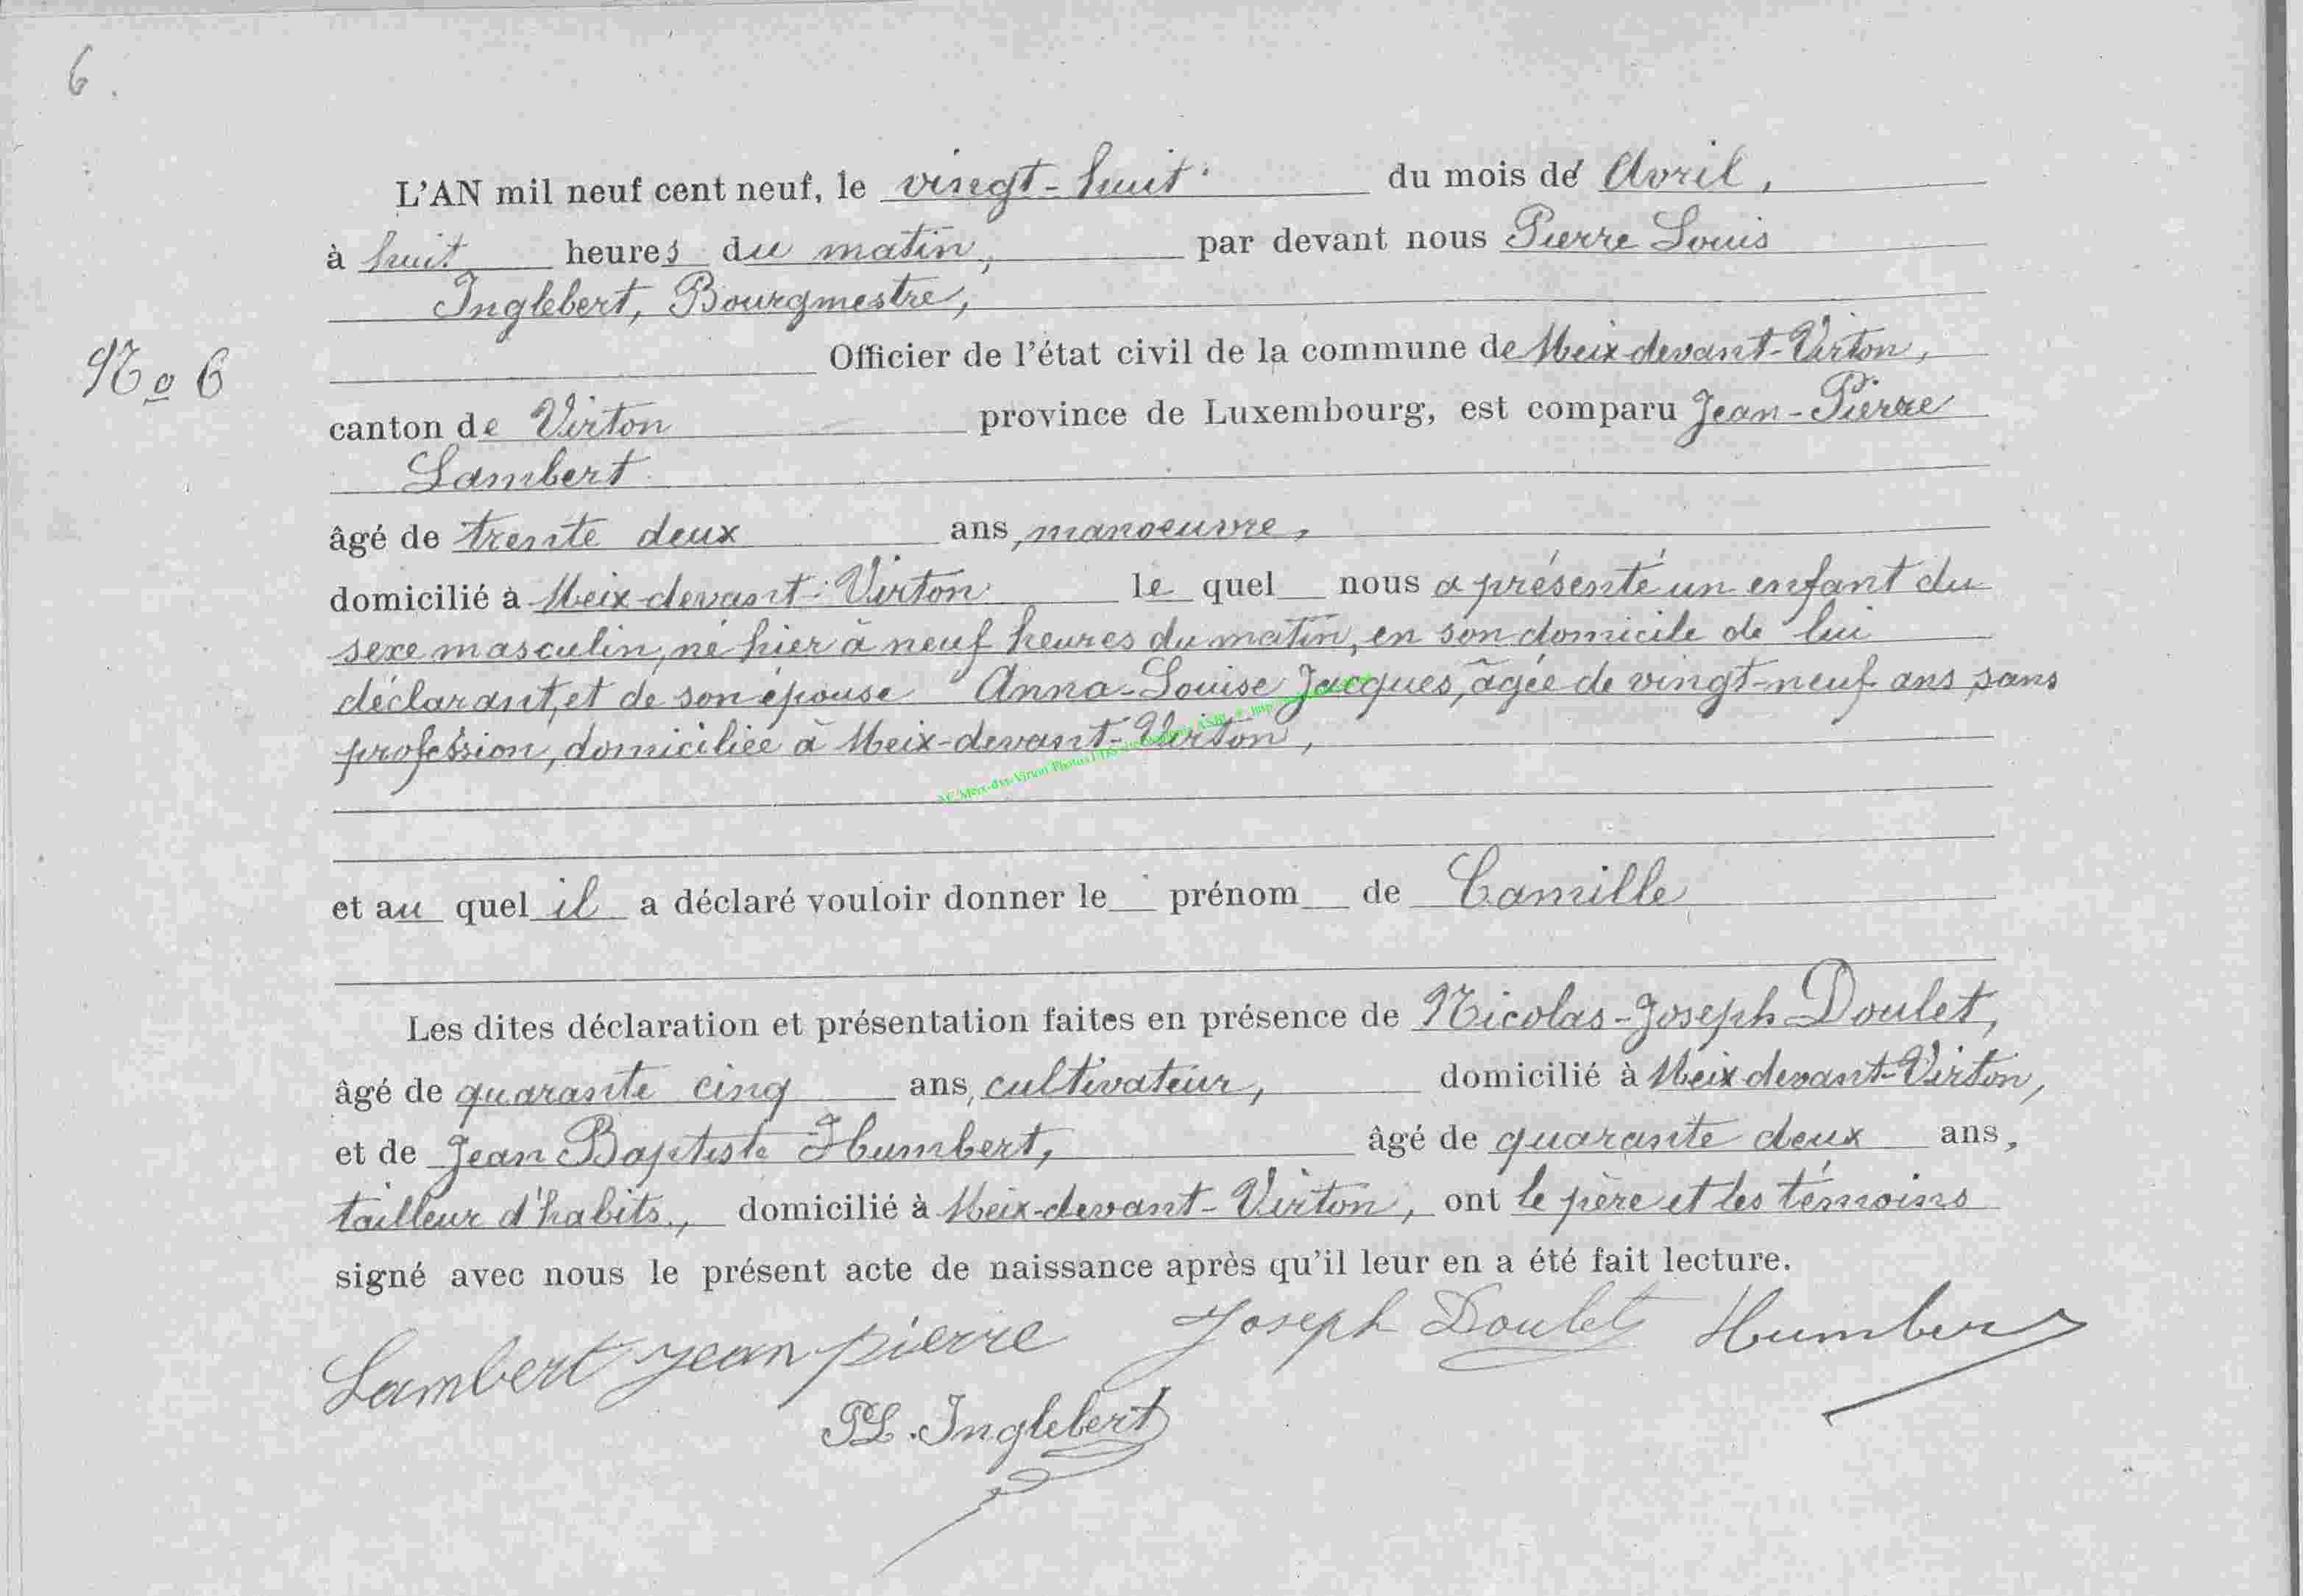 6.
L'AN mil neuf cent neuf, le vingt-huit du mois de Avril,
à huit heures du matin, par devant nous Pierre Louis
Inglebert, Bourgmestre,
Officier de l'état civil de la commune de Meix-devant-Virton,
No 6
canton de Virton province de Luxembourg, est comparu Jean-Pierre
Lambert
âgé de trente deux ans, manoeuvre,
domicilié à Meix-devant-Virton le quel nous a présenté un enfant du
sexe masculin, né hier à neuf heures du matin, en son domicile de lui
déclarant, et de son épouse Anna-Louise Jacques, âgée de vingt-neuf ans, sans
profession, domiciliée à Meix-devant-Virton,
et au quel il a déclaré vouloir donner le prénom de Camille
Les dites déclaration et présentation faites en présence de Nicolas-Joseph Doulet,
âgé de quarante cinq ans, cultivateur, domicilié à Meix devant-Virton,
et de Jean Baptiste Humbert, âgé de quarante deux ans,
tailleur d'habits, domicilié à Meix-devant-Virton, ont le père et les témoins
signé avec nous le présent acte de naissance après qu'il leur en a été fait lecture.
Lambert jean pierre Joseph Doulet Humbert
PL. Inglebert